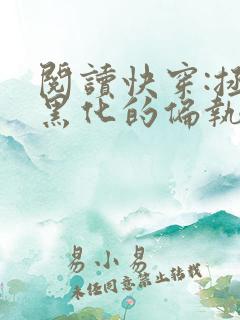 閱讀快穿:
黑化的偏執
易小易
未經同意禁止轉載